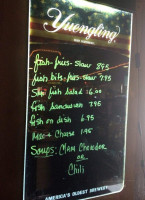 Yuengling
fish-fries-slaw 8.95
fish bits-fries-slaw 7.95
fish salad 6.00
fish sandwich 7.95
fish on dish 6.95
Mac & Cheese 1.95
Soups: Clam Chowder
or
Chili
AMERICA'S OLDEST BREWERY